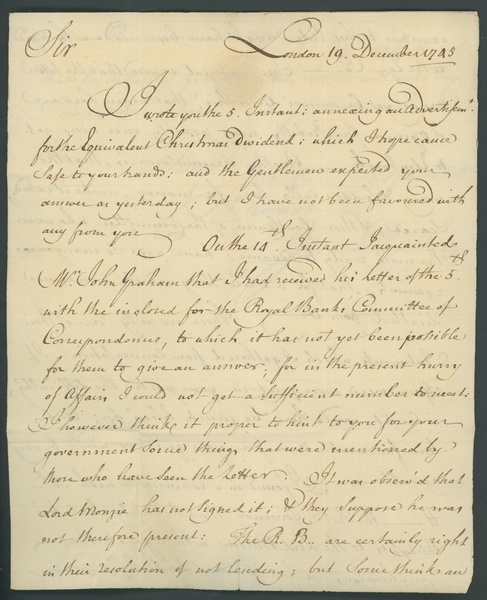 Sir London 19. December 1745
I wrote you the 5. Instant; annexing an Advertisemt.
for the Equivalent Christmas Dividend; which I hope came
safe to your hands; and the Gentlemen expected your
answer as yesterday; but I have not been favoured with
any from you On the 14th. Instant I acquainted
Mr. John Graham that I had received his Letter of the 5th
with the inclosed for the Royal Banks Committee of
Correspondence, to which it has not yet been possible
for them to give an answer; for in the present hurry
of Affairs I could not get a sufficient number to meet:
I however think it proper to hint to you for your
government some things that were mentioned by
those who have seen the Letter: It was observ'd that
Lord Monzie has not signed it; & they suppose he was
not therefore present: The R. B.. are certainly right
in their resolution of not lending; but some think an